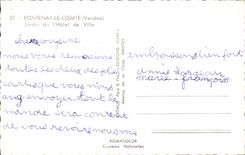 27 - FONTENAY-LE-COMTE (Vendée)
Jardin de l'Hôtel de Ville
chère cousine
nous vous remercions
toutes les deux des jolies
cartes que vous nous
avez envoyez, tout le
monde sera content
de vous revoir nous vous
embrassons bien fort
annie
marie-françoise
ROMACOLOR
Couleurs Naturelles